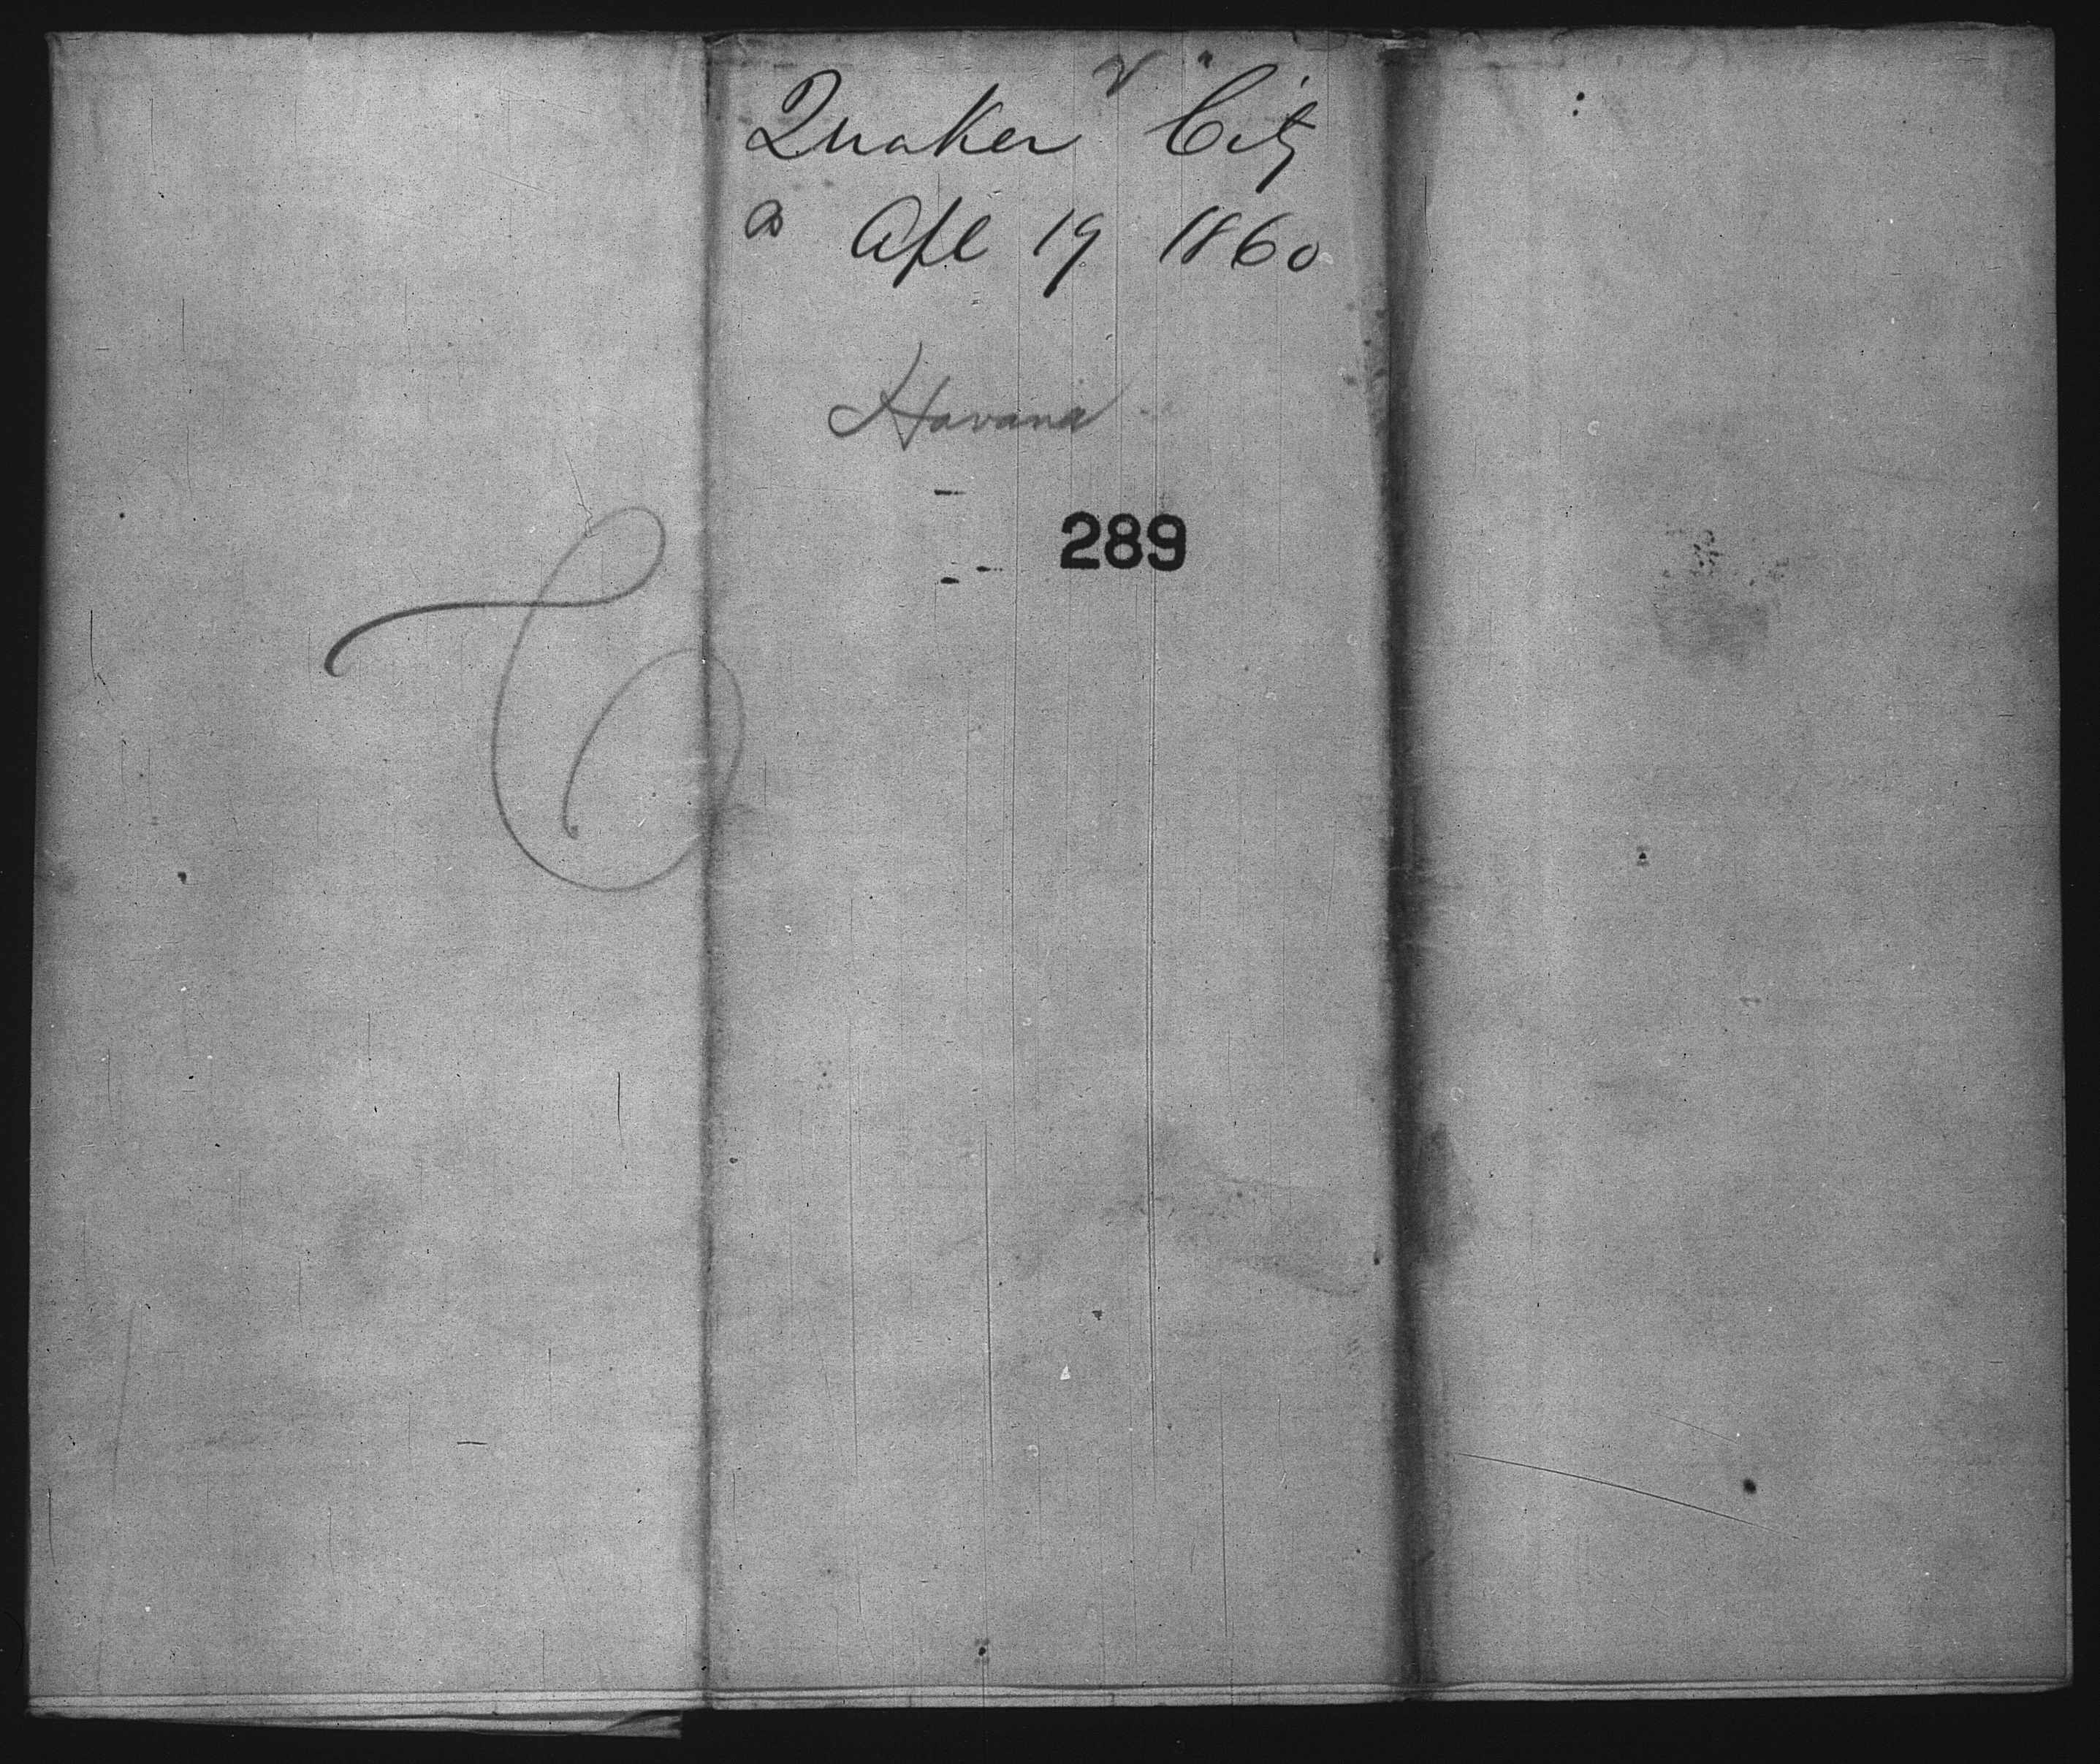 Quaker City
Apl 19 1860
Havana
289